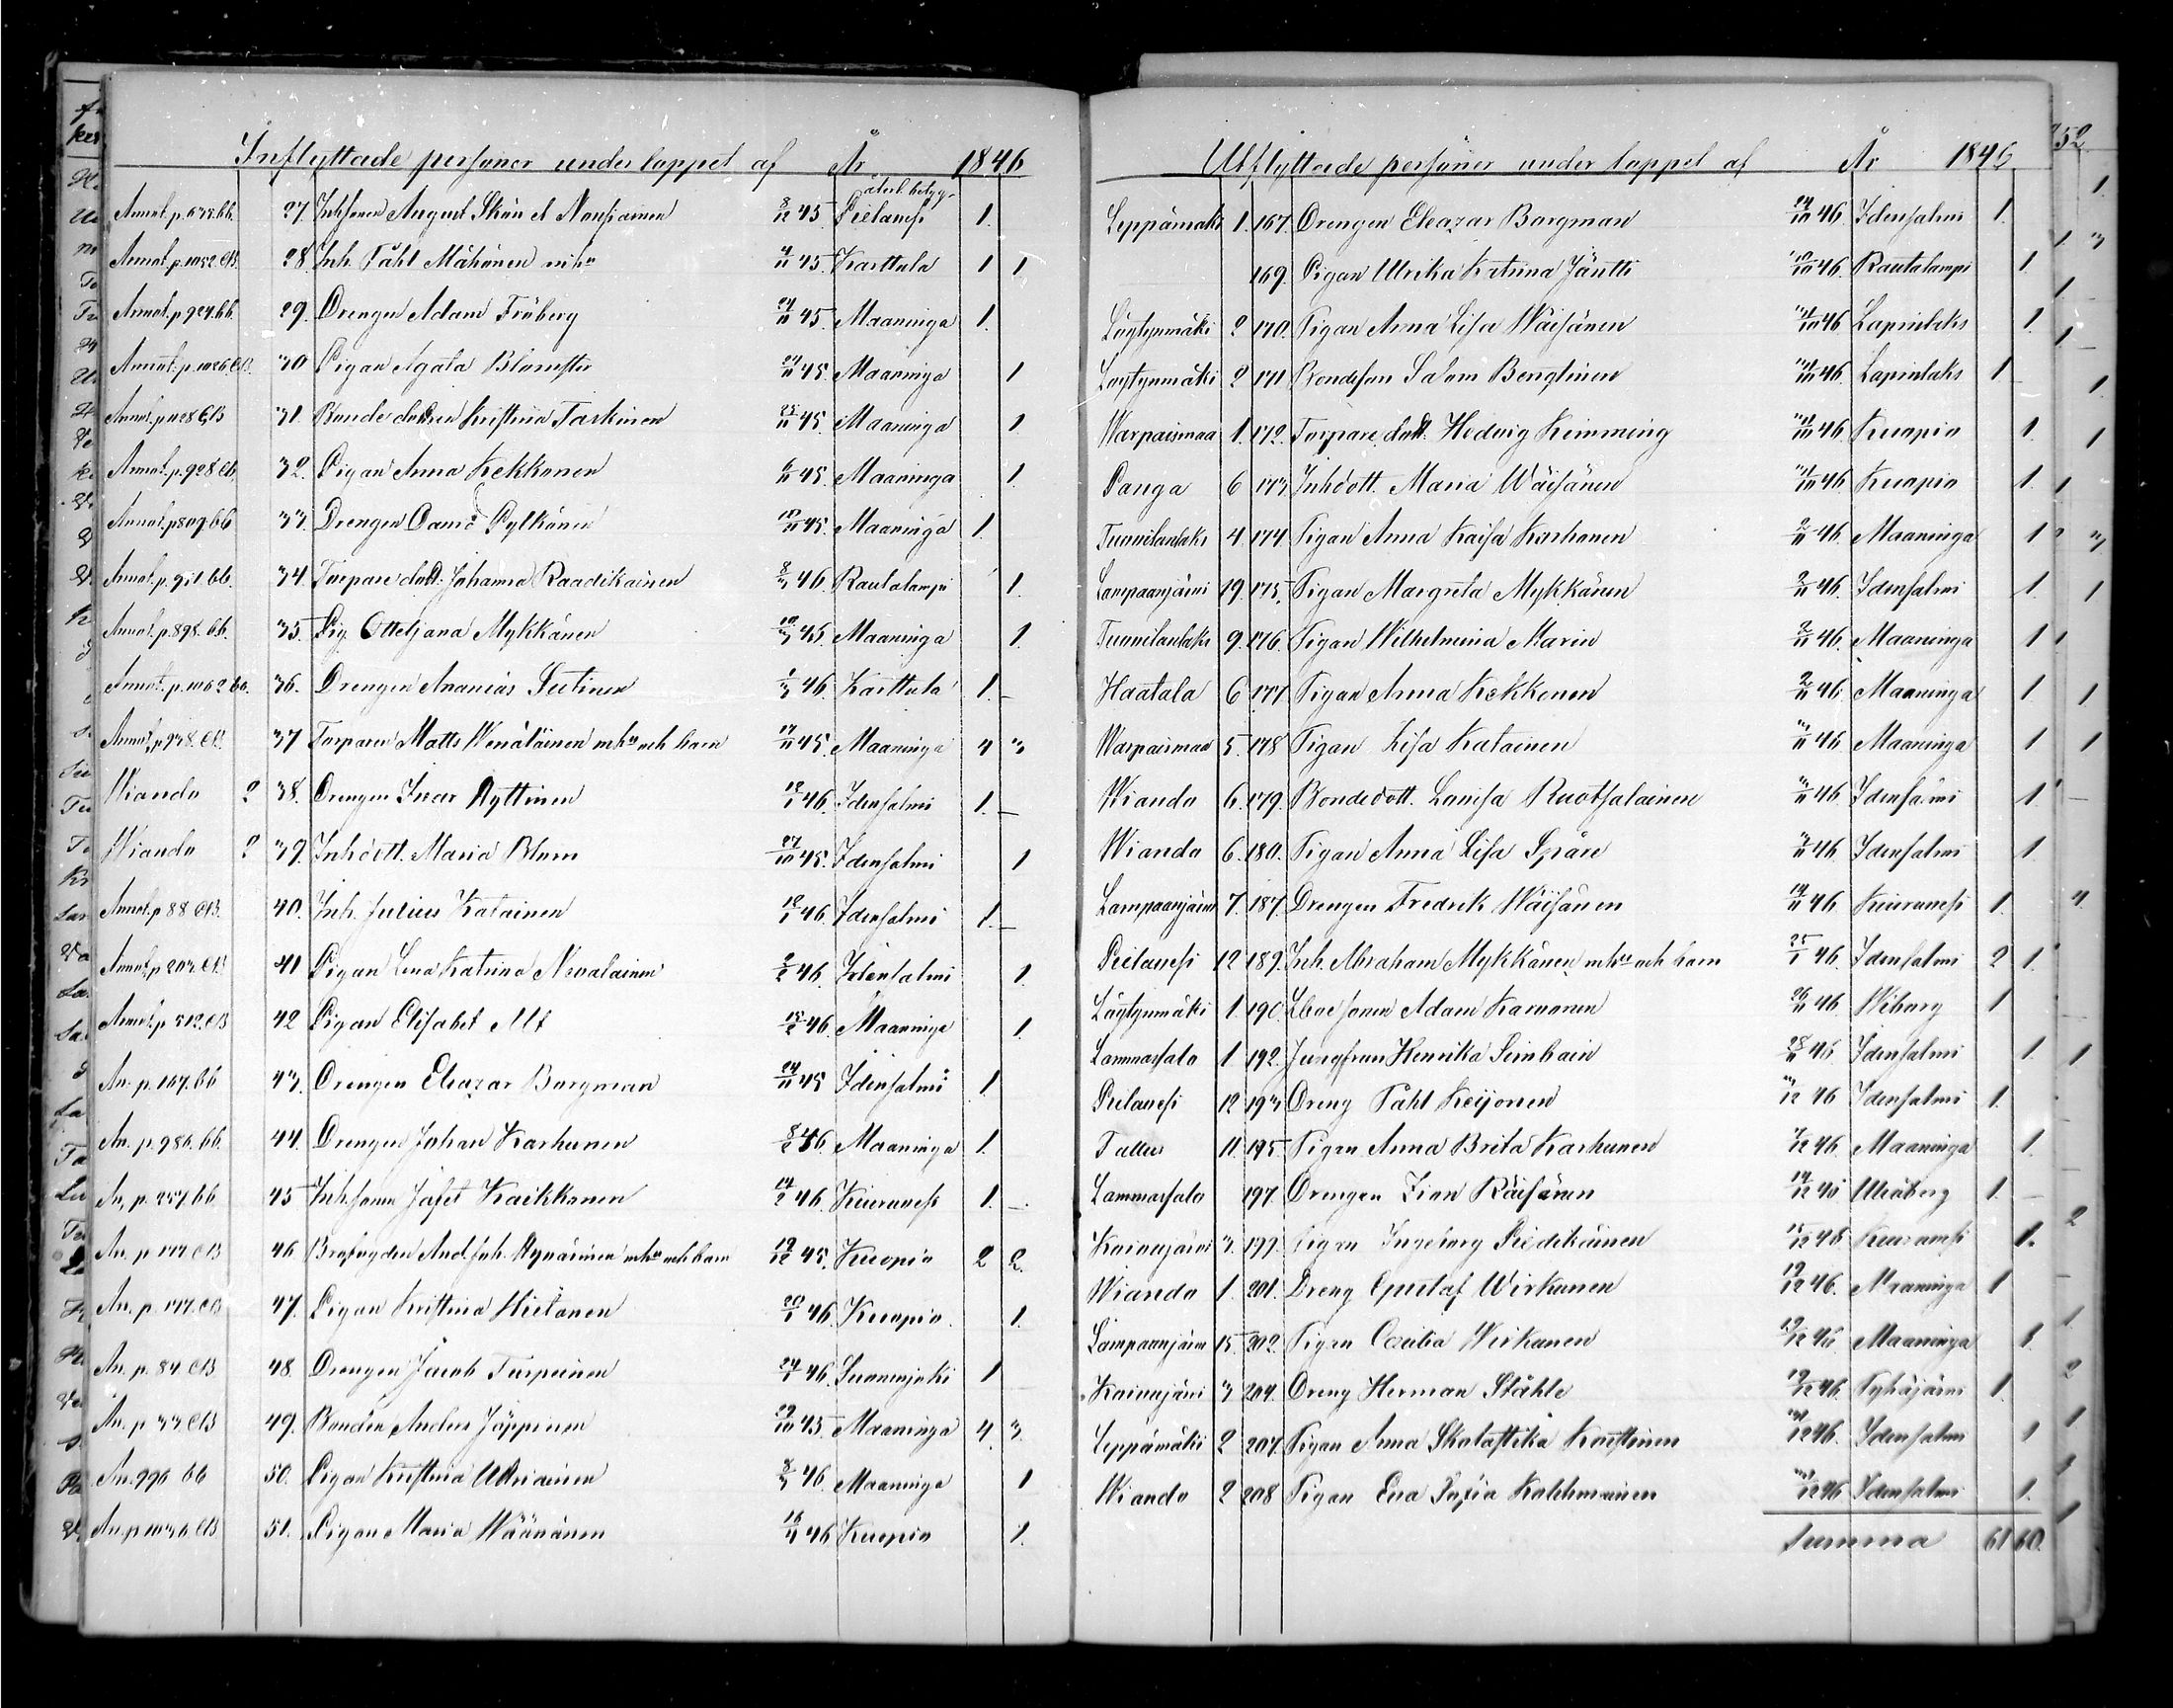 Inflyttade personer under loppet af År 1846
återl. betyg.
Annot. p. 677. bb. 27. Inhsonen August Skön el Nousiainen 8/12 45. Pielavesi 1.
Annot. p. 1052. CB. 28. Inh. Påhl Mähönen mhu 4/11 45. Karttula 1 1
Annot. p. 924. bb. 29. Drengen Adam Fröberg 24/11 45. Maaninga 1.
Annot. p. 1026. CB. 30 Pigan Agata Blomster 24/11 45. Maaninga 1
Annot. p. 1128 CB 31. Bonde dottren Kristina Tarkinen 25/11 45. Maaninga 1.
Annot. p. 928 Cb. 32. Pigan Anna Kekkonen 6/11 45. Maaninga 1.
Annot. p. 809. bb 33. Drengen David Pylkönen 10/11 45. Maaninga 1.
Annot. p. 951. bb. 34. Torpare dott. Johanna Raadikainen 8/3 46. Rautalampi 1.
Annot. p. 898. bb. 35. Pig. Otteljana Mykkänen 10/3 45. Maaninga 1.
Annot. p. 1062 bb. 36. Drengen Ananias Sutinen 1/3 46. Karttula 1. –
Annot. p. 938. CB. 37 Torparen Matts Wenäläinen mhu och barn 17/11 45. Maaninga 4 3
Wiando 2 38. Drengen Ivar Ryttinen 18/1 46. Idensalmi 1. –
Wiando 2 39. Inhdott. Maria Blom 27/10 45. Idensalmi 1
Annot. p. 88 CB. 40. Inh. Julius Katainen 18/1 46. Idensalmi 1. –
Annot. p. 203. CB 41 Pigan Lena Katrina Nevalainen 2/2 46. Idensalmi 1.
Annot. p. 512. CB 42 Pigan Elisabet Alt 15/2 46. Maaninga 1.
An. p. 167. bb 43. Drengen Eleazar Borgman 24/11 45 Idensalmi 1
An. p. 986. bb. 44. Drengen Johan Karhunen 8/2 46. Maaninga 1.
An. p. 257. bb 45 Inhsonen Jafet Kaikkonen 14/2 46. Kiuruvesi 1. –
An. p. 177 CB 46 And. Joh. Hynäninen mhu och barn 19/12 45. Kuopio 2 2.
An. p. 177. CB 47. Pigan Kristina Hietanen 20/1 46. Kuopio. 1.
An. p. 84 CB 48. Drengen Jacob Turpeinen 24/1 46. Suonenjoki 1
An. p 33 CB 49. Bonden Anders Jäppinen 29/10 45. Maaninga 4. 3.
An. 996 bb 50. Pigan Kristina Adriainen 8/3 46. Maaninga 1
An. p 1036 CB 51. Pigan Maria Wäänänen 16/4 46 Kuopio 1.
Utflyttade personer under loppet af År 1846.
352
Leppämäki 1. 167. Drengen Eleazar Borgman 24/10 46. Idensalmi 1.
169. Pigan Ulrika Katrina Jäntti 10/10 46. Rautalampi 1.
Löytynmäki 2 170. Pigan Anna Lisa Wäisänen 31/10 46 Lapinlaks 1.
Löytynmäki 2 171 Bondeson Salom Benglinen 31/10 46. Lapinlaks 1 –
Warpaismaa 1. 172. Torpare dott. Hedvig Kemming 31/10 46 Kuopio 1.
Panga 6 173 Inhdott. Maria Wäisänen 31/10 46. Kuopio 1.
Tuovilanlaks 4 174 Pigan Anna Kaisa Karhonen 2/11 46. Maaninga 1
Lampaanjärvi 19. 175. Pigan Margreta Mykkänen 2/11 46. Idensalmi 1.
Tuovilanlaks 9. 176. Pigan Wilhelmina Marin 2/11 46. Maaninga 1
Haatala 6 177 Pigan Anna Kekkonen 2/11 46. Maaninga 1
Warpaismaa 5. 178 Pigan Lisa Katainen 3/11 46 Maaninga 1
Wiando 6. 179. Bondedott. Lovisa Ruotsalainen 3/11 46 Idensalmi 1
Wiando 6. 180. Pigan Anna Lisa Spåre 7/11 46 Idensalmi 1.
Lampaanjärvi 7. 187. Drengen Fredrik Wäisänen 14/11 46 Kiuruvesi 1.
Pielavesi 12 189. Inh. Abraham Mykkänen mhu och barn 25/1 46. Idensalmi 2 1.
Löytynmäki 1. 190. Adam Karvonen 26/11 46 Wiborg 1
Lammassalo 1. 192. Jungfrun Henrika Limbain 28/11 46 Idensalmi 1.
Pielavesi 12 193 Dreng Påhl Keijonen 3/12 46 Idensalmi 1.
Tallus 11. 195. Pigan Anna Brita Karhunen 7/12 46 Maaninga 1.
Lammassalo 197 Drengen Zion Räisänen 14/12 46 Uleåborg 1. –
Koivujärvi 3. 199. Pigan Ingeborg Piedikäinen 15/12 46 Kiuruvesi 1.
Wiando 1. 201. Dreng Gustaf Wirkanen 19/12 46. Maaninga 1
Lampaanjärvi 15. 202. Pigan Cecilia Wirkanen 19/12 46 Maaninga 1.
Koivujärvi 3 204. Dreng Herman Ståhle 19/12 46. Pyhäjärvi 1.
Leppämäki 2 207. Pigan Anna Skolastika Korttinen 31/12 46. Idensalmi 1
Wiando 2 208 Pigan Eva Sofia Kolehmainen 31/12 46 Idensalmi 1.
Summa 61 60.